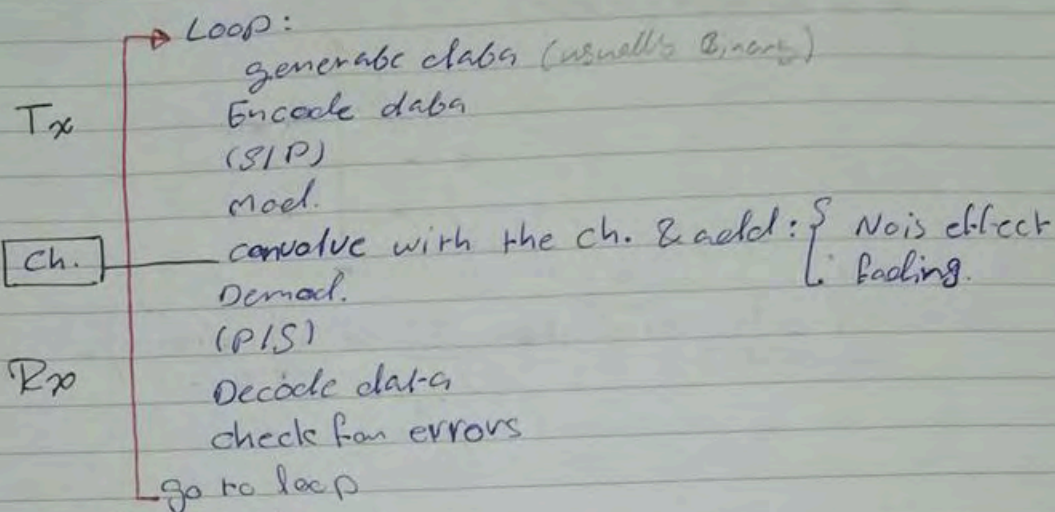 Loop:
generate data (usually Binary)
Tx
Encode data
(S/P)
mod.
convolve with the ch. & add: { Nois effect
Ch.
fading.
Demod.
(P/S)
Rx
Decode data
check for errors
go to loop